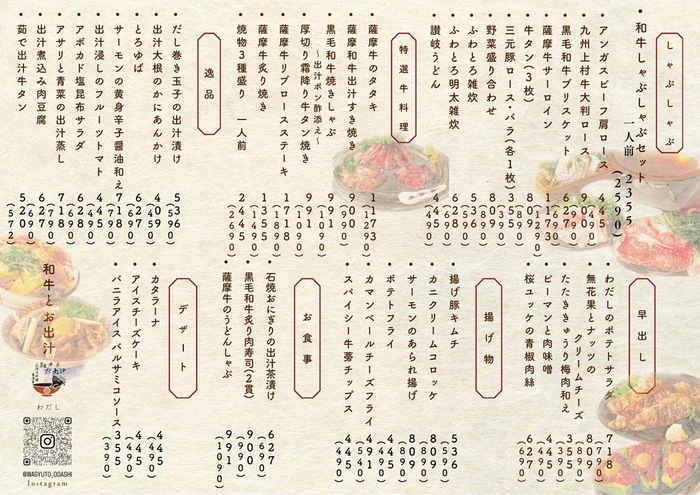 しゃぶしゃぶ
・和牛しゃぶしゃぶセット 一人前 2355 (2590)
・アンガスビーフ肩ロース 445 (490)
・九州上村牛大判ロース 900 (990)
・黒毛和牛ブリスケット 627 (690)
・薩摩牛サーロイン 1173 (1290)
・牛タン(3枚) 809 (890)
・三元豚ロース・バラ(各1枚) 355 (390)
・野菜盛り合わせ 809 (890)
・ふわとろ雑炊 536 (590)
・ふわとろ明太雑炊 628 (690)
・讃岐うどん 445 (490)
特選牛料理
・薩摩牛のタタキ 1173 (1290)
・薩摩和牛出汁すき焼き 900 (990)
・黒毛和牛焼きしゃぶ 991 (1090)
〜出汁ポン酢添え〜
・厚切り霜降り牛タン焼き 991 (1090)
・薩摩牛リブロースステーキ 1718 (1890)
・薩摩牛炙り焼き 1355 (1490)
・焼物3種盛り 一人前 2445 (2690)
逸品
・だし巻き玉子の出汁漬け 536 (590)
・出汁大根のかにあんかけ 409 (450)
・とろゆば 627 (690)
・サーモンの黄身辛子醤油和え 718 (790)
・出汁浸しのフルーツトマト 445 (490)
・アボカド塩昆布サラダ 628 (690)
・アサリと青菜の出汁蒸し 718 (790)
・出汁煮込み肉豆腐 627 (690)
・茹で出汁牛タン 520 (572)
早出し
・わだしのポテトサラダ 718 (790)
・無花果とナッツの
クリームチーズ 809 (890)
・たたききゅうり梅肉和え 355 (390)
・ピーマンと肉味噌 445 (490)
・桜ユッケの青椒肉絲 627 (690)
揚げ物
・揚げ豚キムチ 536 (590)
・カニクリームコロッケ 809 (890)
・サーモンのあられ揚げ 809 (890)
・ポテトフライ 445 (490)
・カマンベールチーズフライ 491 (540)
・スパイシー牛蒡チップス 445 (490)
お食事
・石焼おにぎりの出汁茶漬け 627 (690)
・黒毛和牛炙り肉寿司(2貫) 900 (990)
・薩摩牛のうどんしゃぶ 991 (1090)
デザート
・カタラーナ 445 (490)
・アイスチーズケーキ 445 (490)
・バニラアイス バルサミコソース 355 (390)
和牛とお出汁
わだし
@WAGYUTO_ODASHI
Instagram